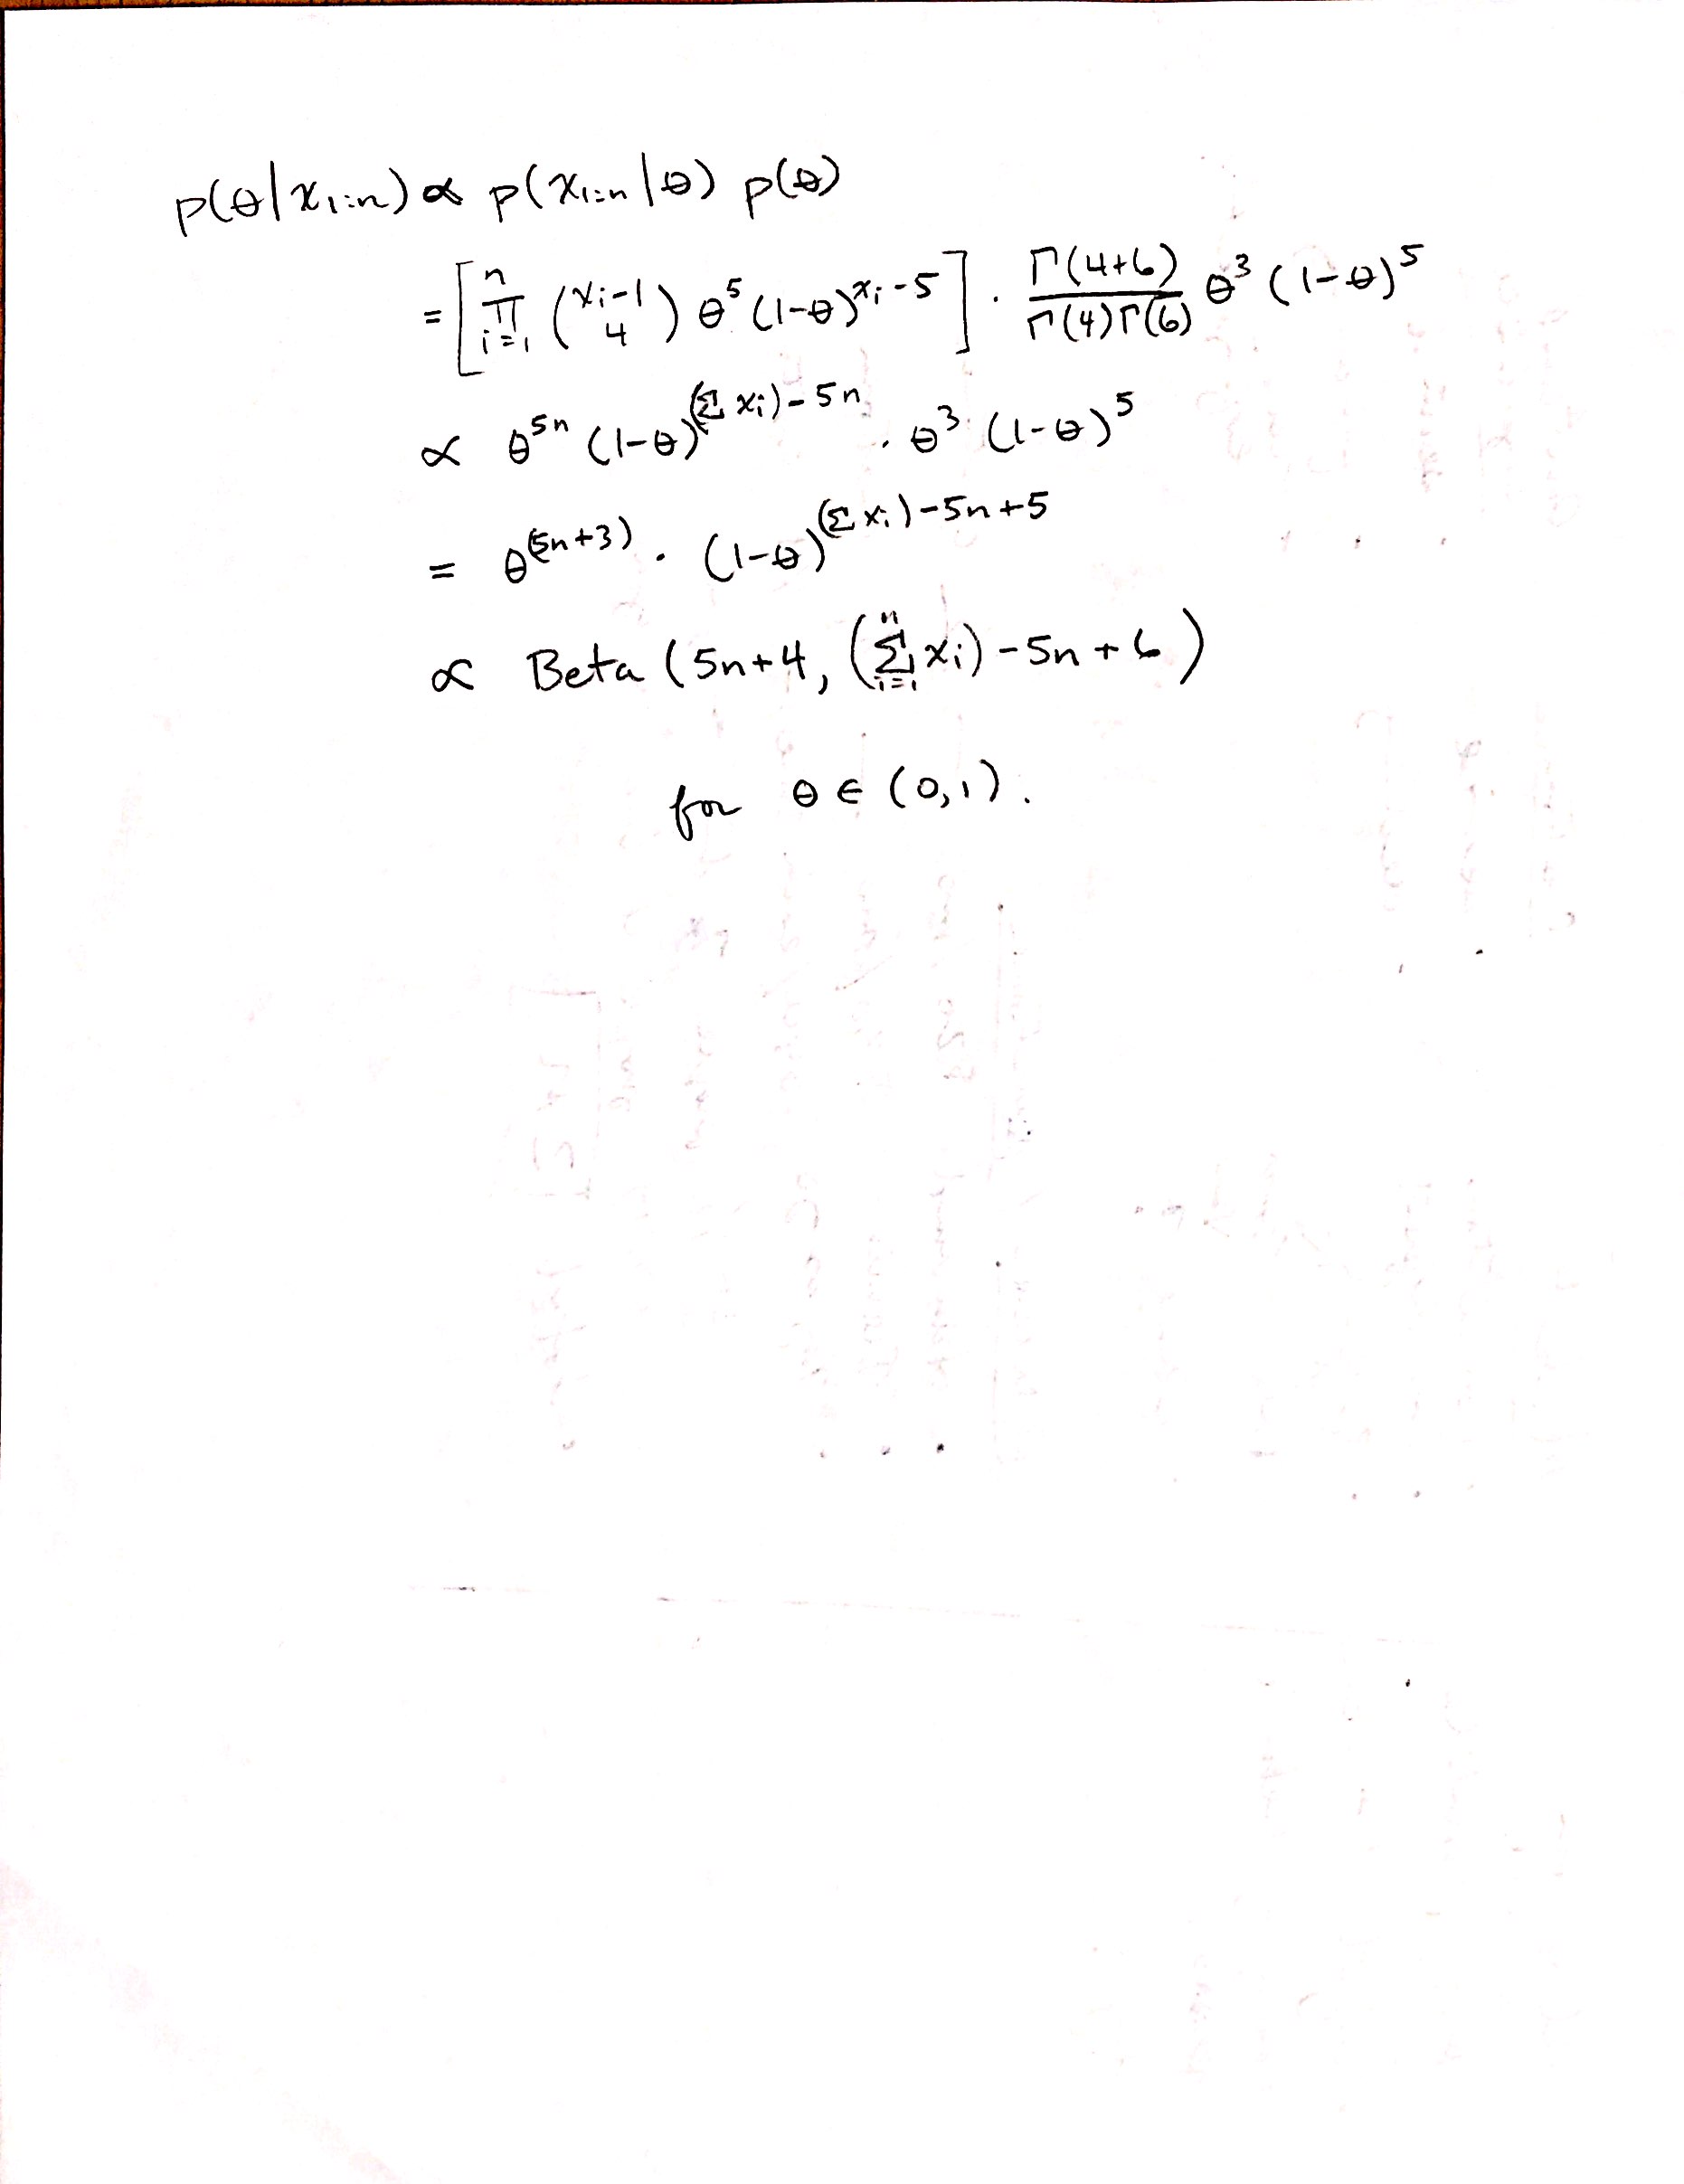 p(θ|x₁:ₙ) ∝ p(x₁:ₙ|θ) p(θ)
= [∏ᵢ₌₁ⁿ (xᵢ-1 choose 4) θ⁵ (1-θ)^(xᵢ-5)] · Γ(4+6)/(Γ(4)Γ(6)) θ³ (1-θ)⁵
∝ θ^(5n) (1-θ)^((Σ xᵢ)-5n) · θ³ (1-θ)⁵
= θ^(5n+3) · (1-θ)^((Σ xᵢ)-5n+5)
∝ Beta (5n+4, (Σᵢ₌₁ⁿ xᵢ) - 5n + 6)
for θ ∈ (0,1).